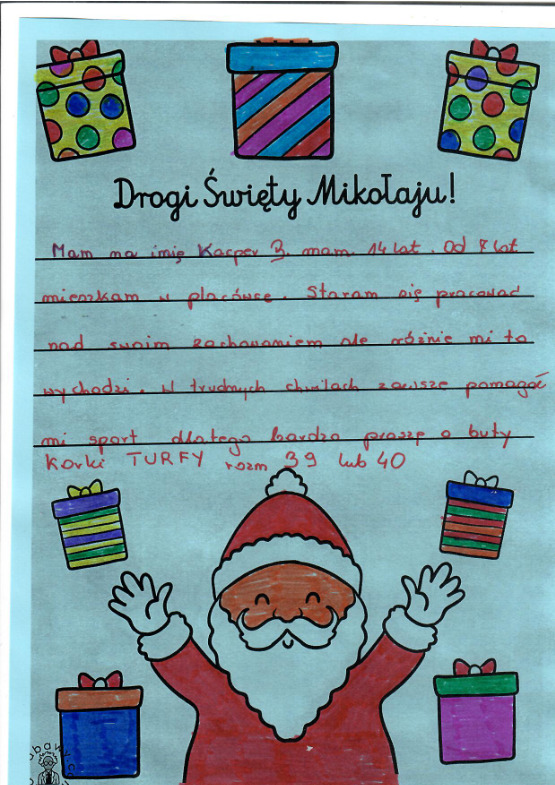 Drogi Święty Mikołaju!
Mam na imię Kacper B. mam 14 lat. Od 7 lat
mieszkam w placówce. Staram się pracować
nad swoim zachowaniem ale różnie mi to
wychodzi. W trudnych chwilach zawsze pomagać
mi sport dlatego bardzo proszę o buty
Korki TURFY rozm 39 lub 40